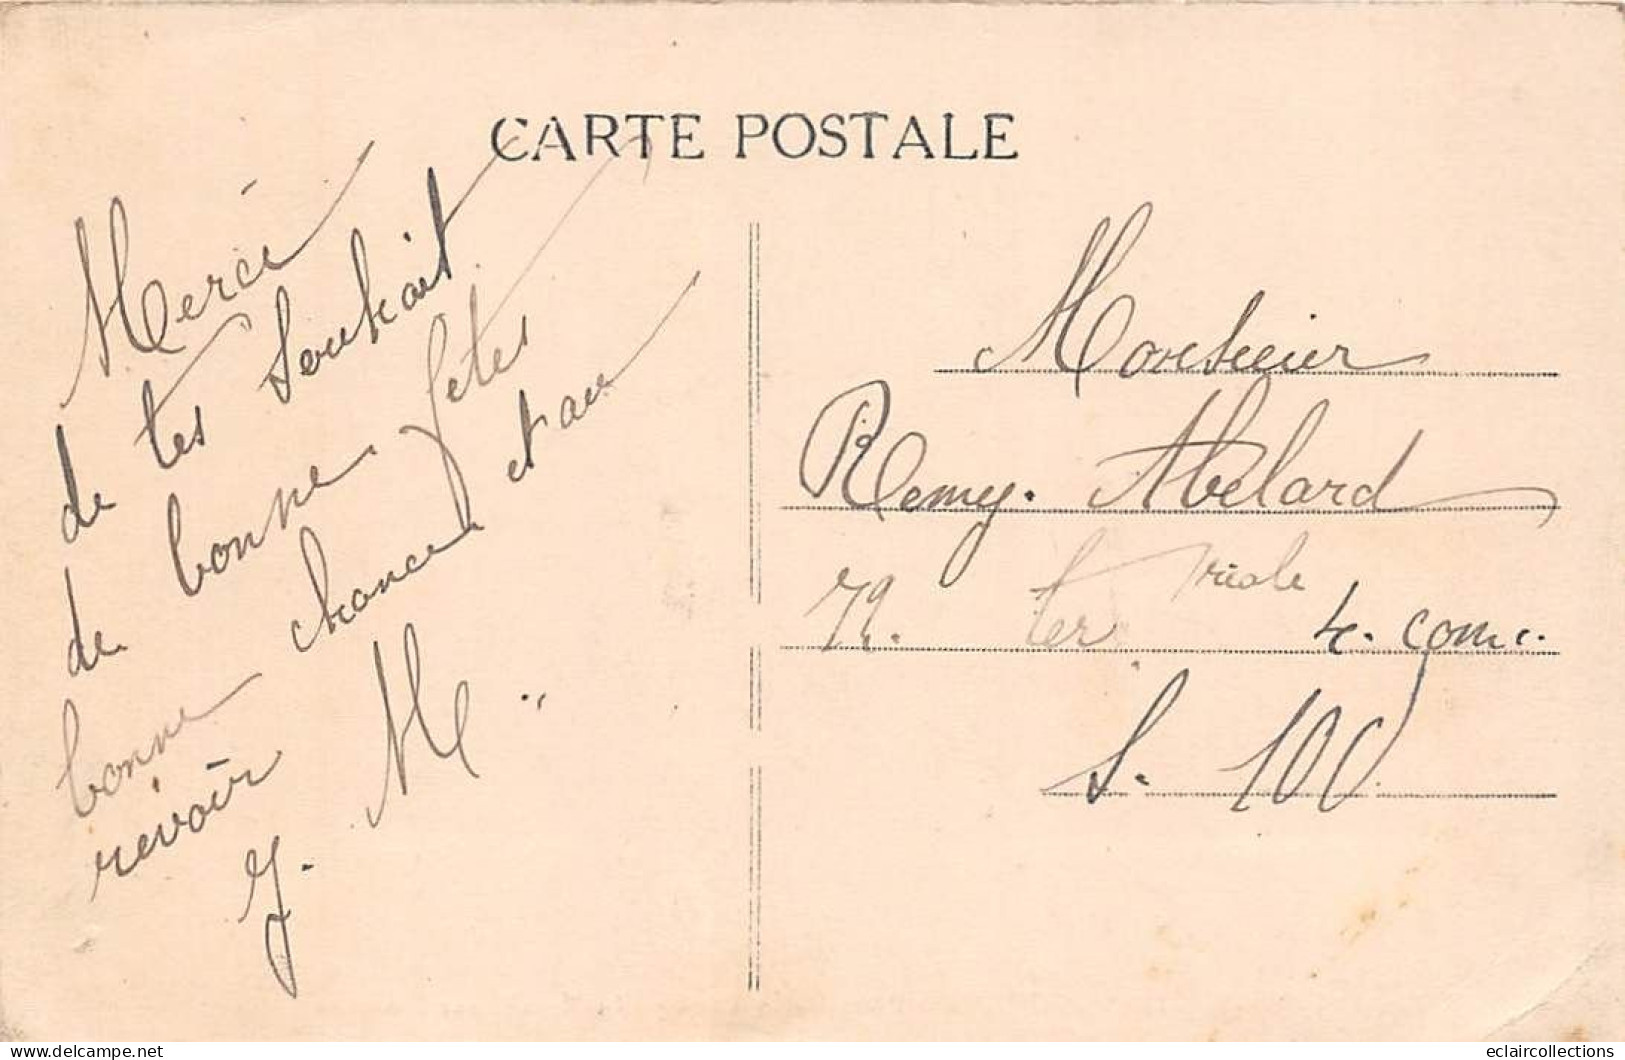 CARTE POSTALE
Mérci
de tes souhait
de bonne fetes
de bonne chance et au
bonne
revoir
J. M..
Monsieur
Remy. Abelard
72. ter 4e. com.
S. 100
delcampe.net
eclaircollections